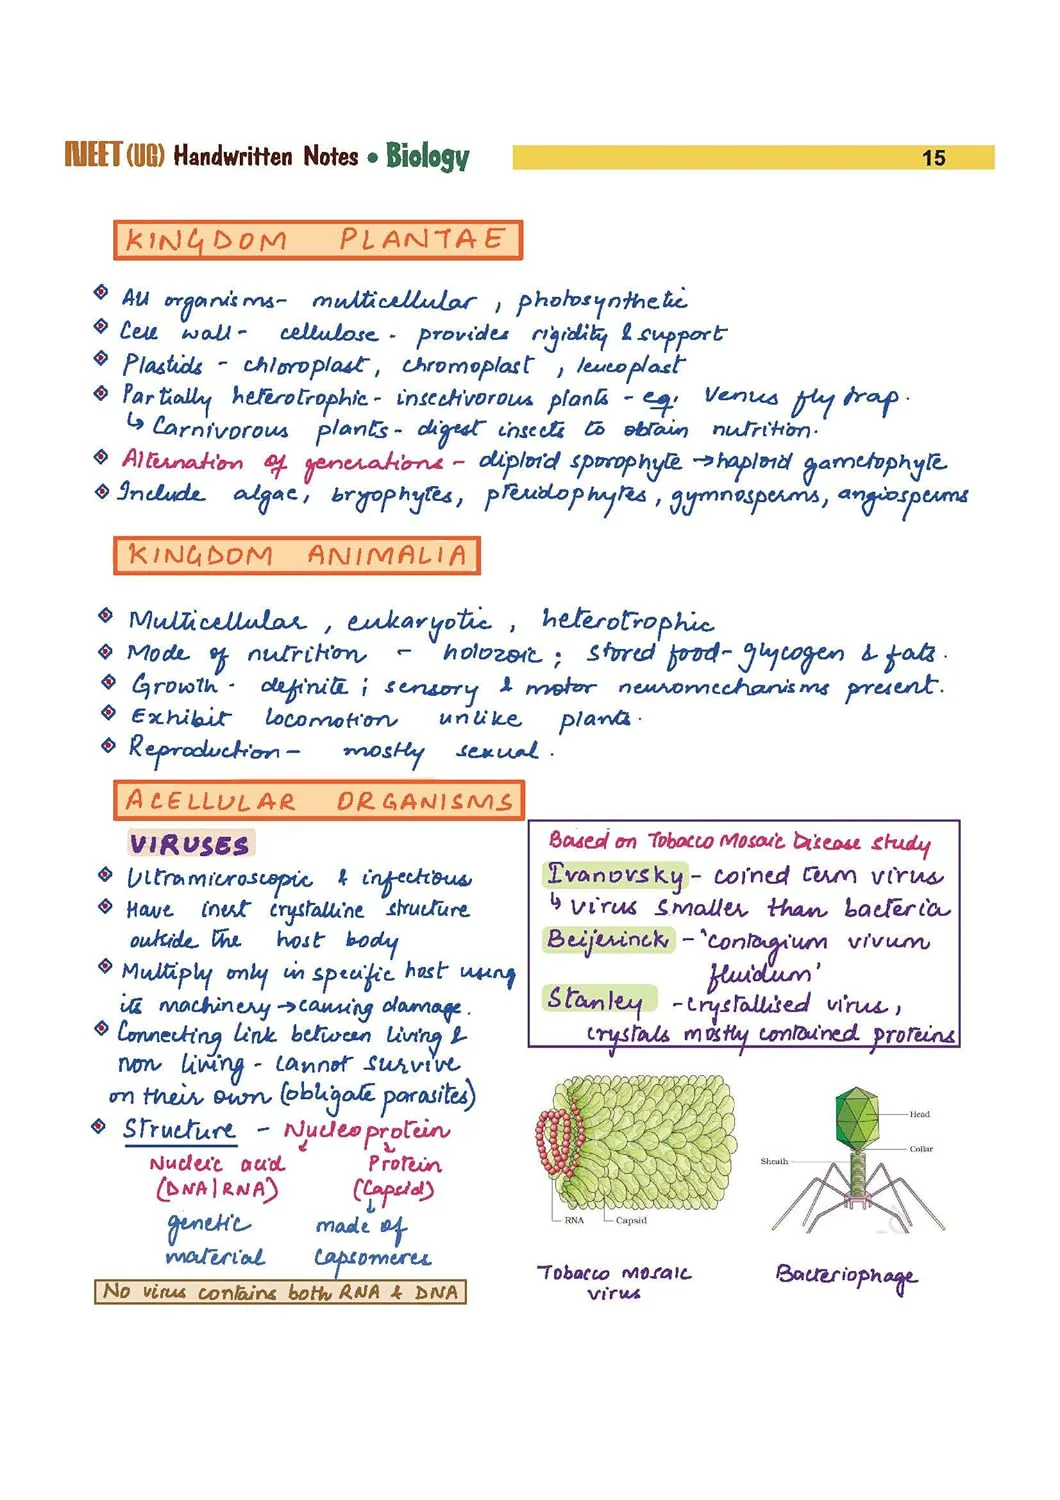 NEET (UG) Handwritten Notes • Biology 15
KINGDOM PLANTAE
All organisms- multicellular, photosynthetic
Cell wall - cellulose - provides rigidity & support
Plastids - chloroplast, chromoplast, leucoplast
Partially heterotrophic - insectivorous plants - eg. Venus fly trap.
↳ Carnivorous plants - digest insects to obtain nutrition.
Alternation of generations - diploid sporophyte → haploid gametophyte
Include algae, bryophytes, pteridophytes, gymnosperms, angiosperms
KINGDOM ANIMALIA
Multicellular, eukaryotic, heterotrophic
Mode of nutrition - holozoic; stored food- glycogen & fats.
Growth - definite; sensory & motor neuromechanisms present.
Exhibit locomotion unlike plants.
Reproduction - mostly sexual.
ACELLULAR ORGANISMS
VIRUSES
Ultramicroscopic & infectious
Have inert crystalline structure
outside the host body
Multiply only in specific host using
its machinery → causing damage.
Connecting link between living &
non living - cannot survive
on their own (obligate parasites)
Structure - Nucleoprotein
Nucleic acid Protein
(DNA|RNA) (Capsid)
genetic made of
material capsomeres
No virus contains both RNA & DNA
Based on Tobacco Mosaic Disease study
Ivanovsky - coined term virus
↳ virus smaller than bacteria
Beijerinck - 'contagium vivum
fluidum'
Stanley - crystallised virus,
crystals mostly contained proteins
RNA Capsid
Tobacco mosaic
virus
Head
Collar
Sheath
Bacteriophage